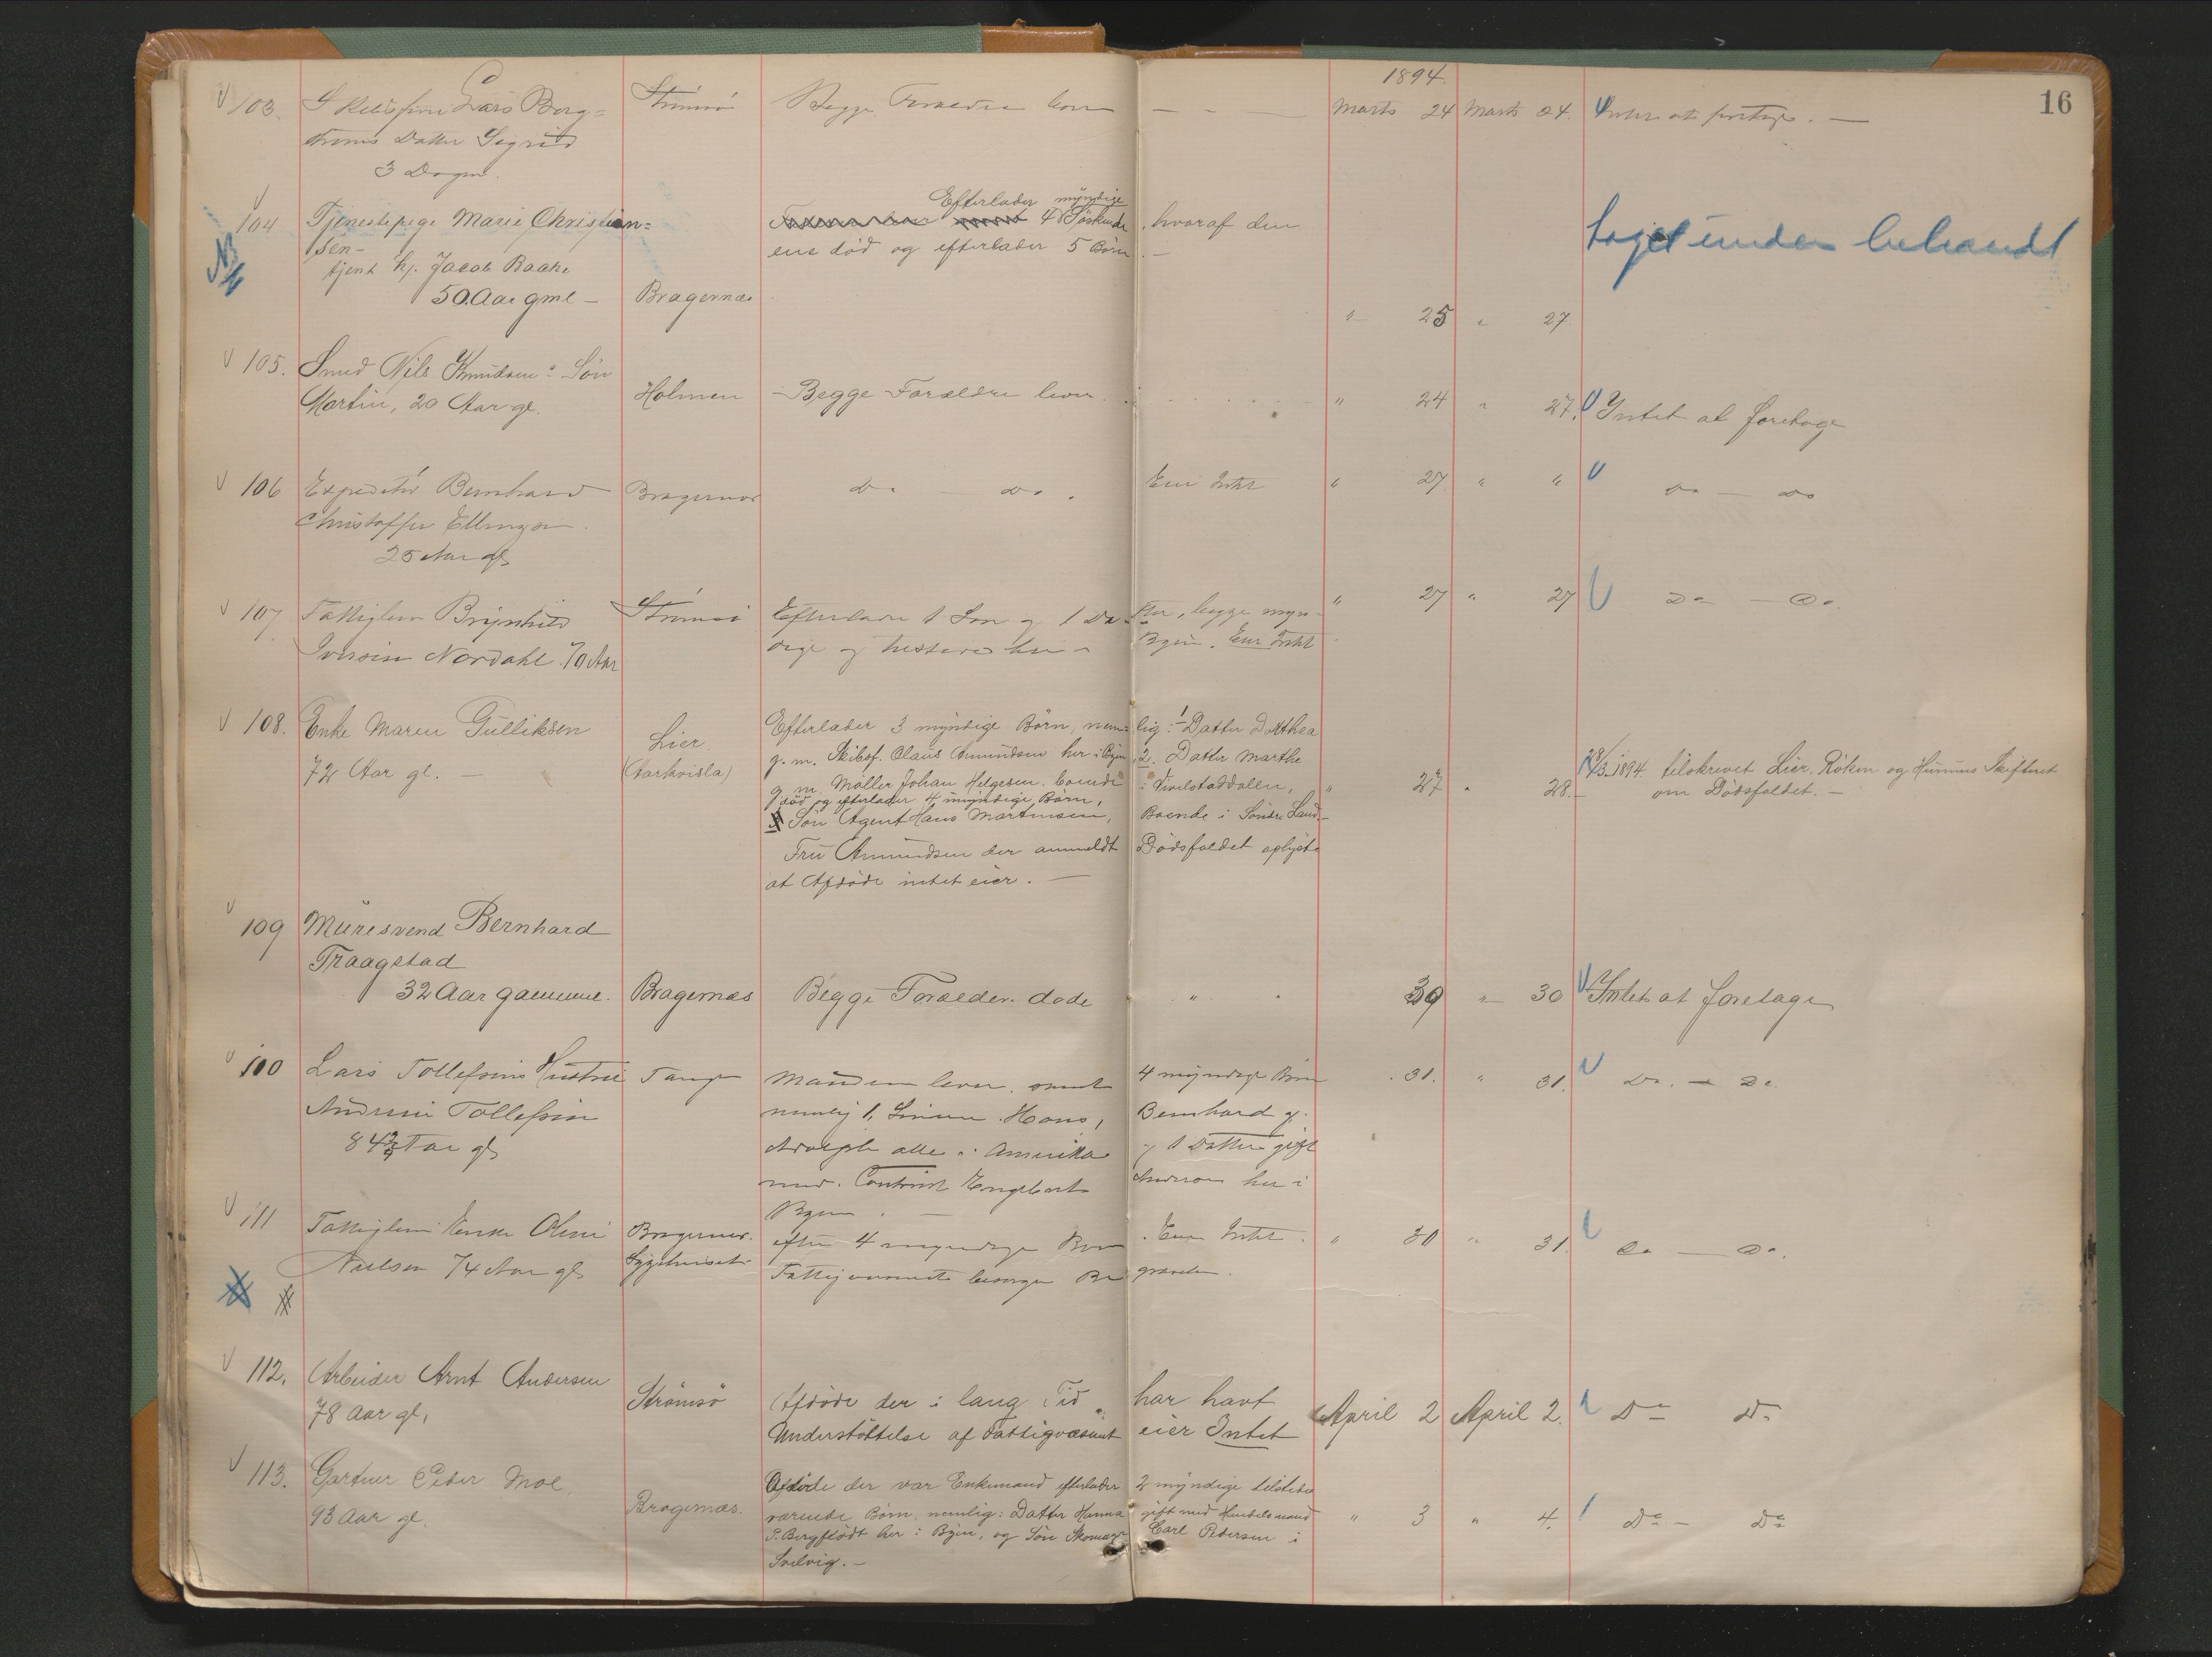 16
1894.
103. Lars Berg=
Datter Sigrid
3 Dage
Strømsø
Begge Forældre lever
Marts 24 Marts 24. Intet at foretage. —
104 Tjenestepige Marie Christian=
sen —
tjent hj. Jacob Baake
50 Aar gml — Bragernæs
Efterlader myndige
4 Söskende, hvoraf den
ene död og efterlader 5 Börn. —
" 25 " 27
Taget under behandl
105. Smed Nils Knudsens Sön
Martin, 20 Aar gl.
Holmen
Begge Forældre lever.
" 24 " 27. Intet at foretage
106 Expeditör Bernhard
Christoffer Ellingsen.
25 Aar gl
Bragernæs
do — do. Eier Intet
" 27 " " do — do
107 Fattiglem Brynhild
Iversen Nordahl 70 Aar
Strømsø
Efterlader 1 Søn og 1 Datter, begge myn-
dige og tilstede her i Byen. Eier Intet
" 27 " 27 Do — Do.
108. Enke Maren Gulliksen
72 Aar gl. —
Lier
Efterlader 3 myndige Börn, nemlig: 1 Datter Dorthea
g. m. Skibsf. Olaus Amundsen her i Byen, 2. Datter Marthe
g. m. Möller Johan Helgesen, boende i
död og efterlader 4 umyndige Börn,
Sön Agent Hans Martinsen, Boende i Söndre Land. —
Fru Amundsen der anmeldt Dödsfaldet oplyste
at Afdöde intet eier. —
" 27 " 28. —
28/3 1894 tilskrevet Lier, Röken og Hurums Skifteret
om Dödsfaldet. —
109 Muresvend Bernhard
Traagstad
32 Aar gammel. Bragernæs
Begge Forældre döde " "
30 " 30 Intet at foretage
110 Lars Tollefsens Hustru
Tollefsen
84 Aar gl
Tangen
Manden lever, samt 4 myndige Börn
nemlig 1, Sønnen Hans, Bernhard g.
Adolph alle i Amerika og 1 Datter gift
med Engebret Anderson her i
Byen. —
. 31. " 31. Do. — Do.
111 Fattiglem Enke Oline
Nielsen 74 Aar gl
Bragernæs.
Sygehuset.
efter 4 myndige Börn. Eier Intet.
Fattigvæsenet besörger Begravelsen.
" 30 " 31. Do — Do.
112. Arbeider Arnt Andersen
78 Aar gl,
Strömsö
Afdöde der i lang Tid har havt
Understöttelse af Fattigvæsenet eier Intet
April 2 April 2. Do Do
113. Gartner Peder Moe,
93 Aar gl.
Bragernæs.
Afdöde der var Enkemand efterlader 2 myndige tilstede
værende Börn, nemlig: Datter Hanna gift med Handelsmand
P. Bergflödt her i Byen, og Sön Skomager Carl Pedersen i
Svelvig. —
" 3 " 4. Do — Do